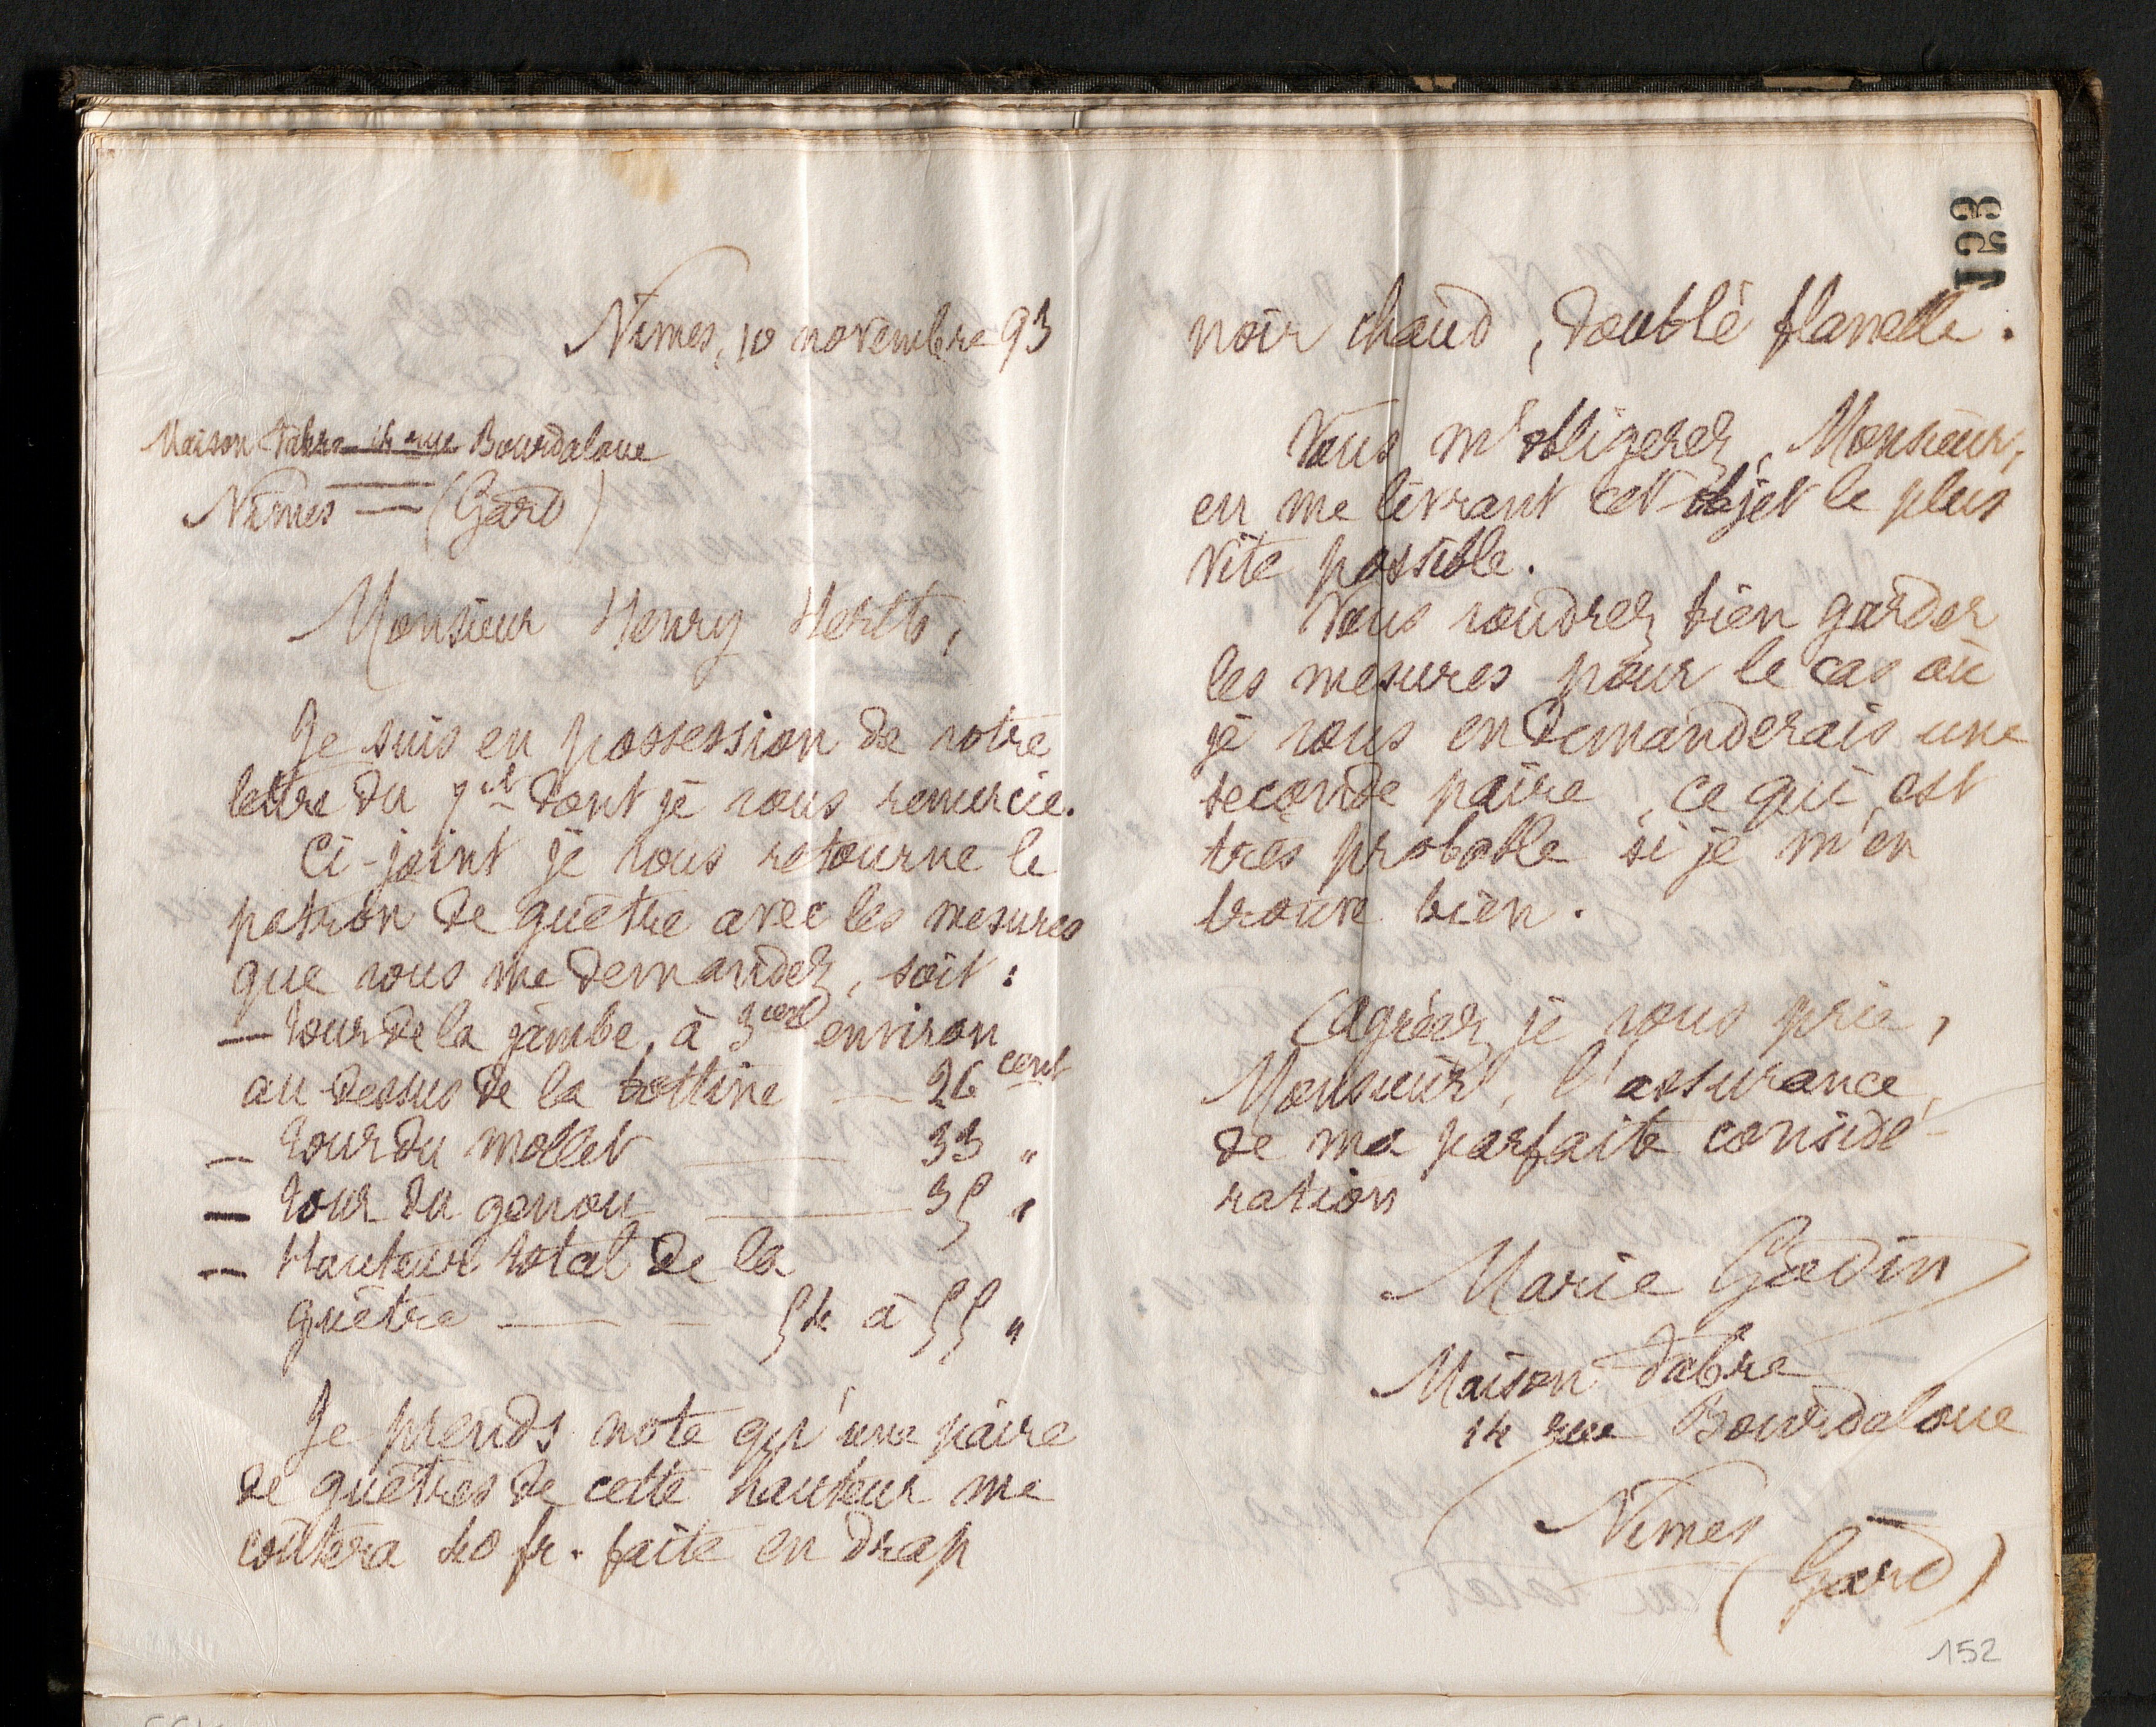 Nîmes, 10 novembre 93
Maison Fabre 14 rue Bourdaloue
Nîmes — (Gard)
Monsieur Henry
Je suis en possession de votre
lettre du 7 ct dont je vous remercie.
Ci-joint je vous retourne le
patron de guêtre avec les mesures
que vous me demandez, soit :
— tour de la jambe, à 3 cent environ
au-dessus de la bottine — 26 cent
— tour du mollet — 33 "
— tour du genou — 35 "
— Hauteur total de la
guêtre — — 54 à 55 "
Je prends note qu'une paire
de guêtres de cette hauteur me
coûtera 40 fr. faite en drap
123
noir chaud, doublé flanelle.
Vous m'obligerez, Monsieur,
en me livrant cet objet le plus
vite possible.
Vous voudrez bien garder
les mesures pour le cas où
je vous en demanderais une
seconde paire, ce qui est
très probable si je m'en
trouve bien.
Agréez, je vous prie,
Monsieur, l'assurance
de ma parfaite considé-
ration
Marie Godin
Maison Fabre
14 rue Bourdaloue
Nîmes
(Gard)
152